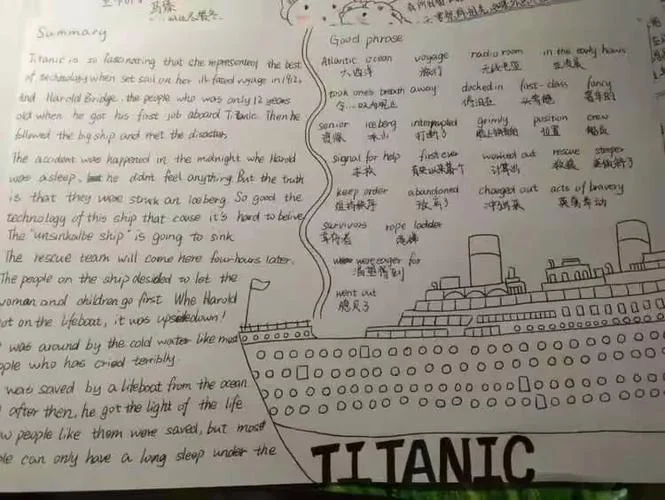 Summary
Titanic is so fascinating that she represented the best
of technology when set sail on her ill-fated voyage in 1912,
And Harold Bridge, the people who was only 12 years
old when he got his first job aboard Titanic. Then he
followed the big ship and met the disaster.
The accident was happened in the midnight whe Harold
was asleep, he didnt feel anything. But the truth
is that they were struck an iceberg. So good the
technology of this ship that cause it's hard to belive
The "unsinkalbe ship" is going to sink
The rescue team will come here four-hours later.
The people on the ship desided to let the
woman and children go first. Whe Harold
got on the lifeboat, it was upsidedown!
was around by the cold water like most
ople who has cried terribly.
was saved by a lifeboat from the ocean
after then, he got the light of the life
w people like them were saved, but most
ple can only have a long sleep under the
Good phrase
Atlantic ocean voyage radio room in the early hours
大西洋 旅行 无线电室
took ones breath away docked in first-class fancy
令...叹为观止 停泊在 头等舱
senior iceberg interrupted grimly position crew
冰山 打断了 位置 船员
signal for help first ever worked out rescue steeper
求救 计算出 救援
keep order abandoned charged out acts of bravery
维持秩序 放弃了 冲出来 英勇举动
survivors rope ladder
幸存者 绳梯
were eager for
渴望得到
went out
熄灭了
TITANIC